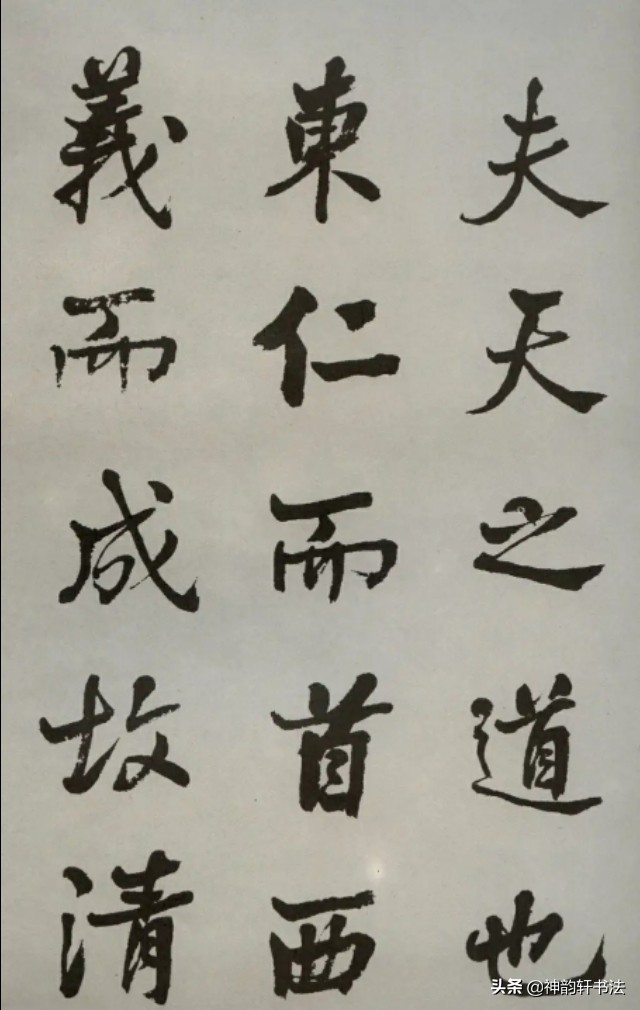 夫天之道也
東仁而首西
義而成故清
头条 @神韵轩书法